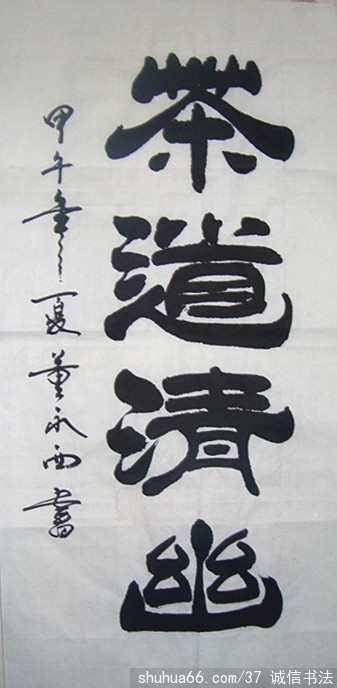 茶道清幽
甲午年之夏董永西書
shuhua66.com/37 诚信书法